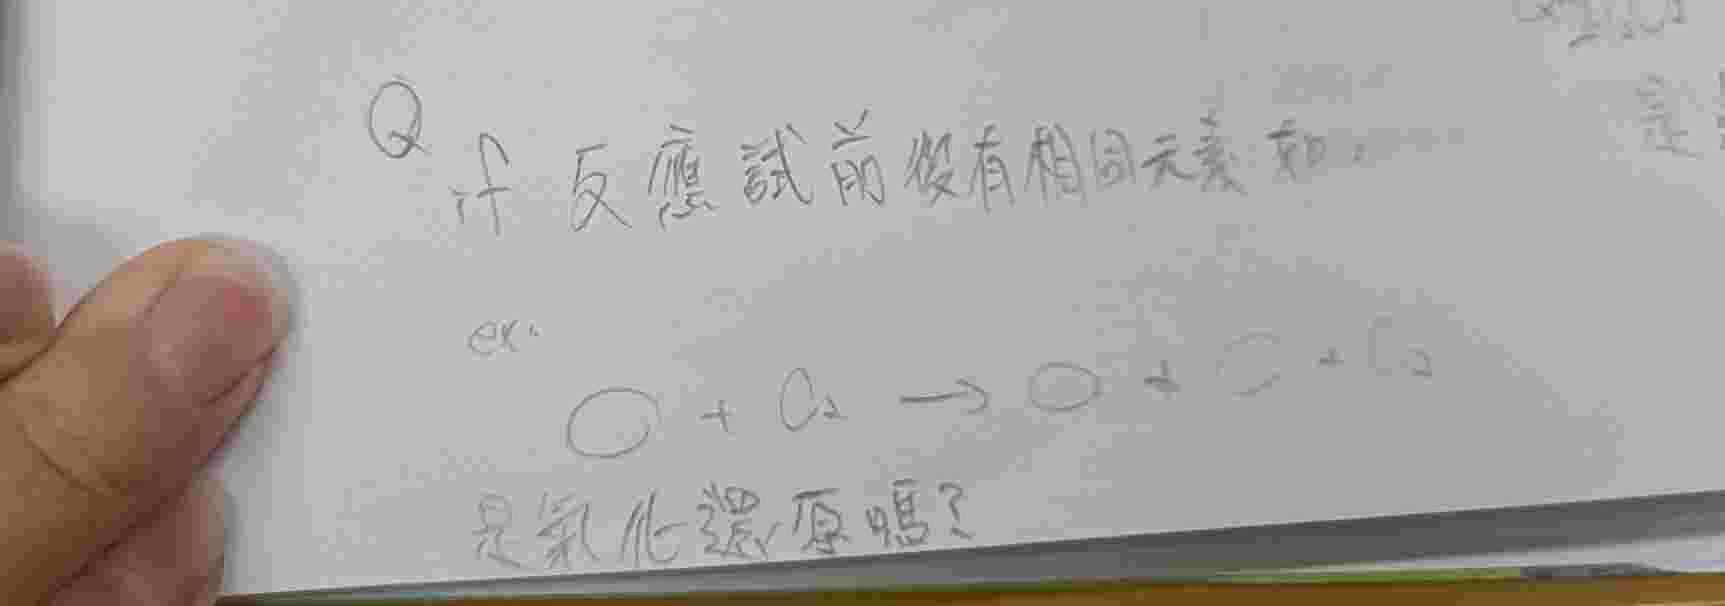 Q
if 反應試前後有相同元素 如.
ex.
○ + O₂ → ○ + ○ + O₂
是氧化還原嗎?